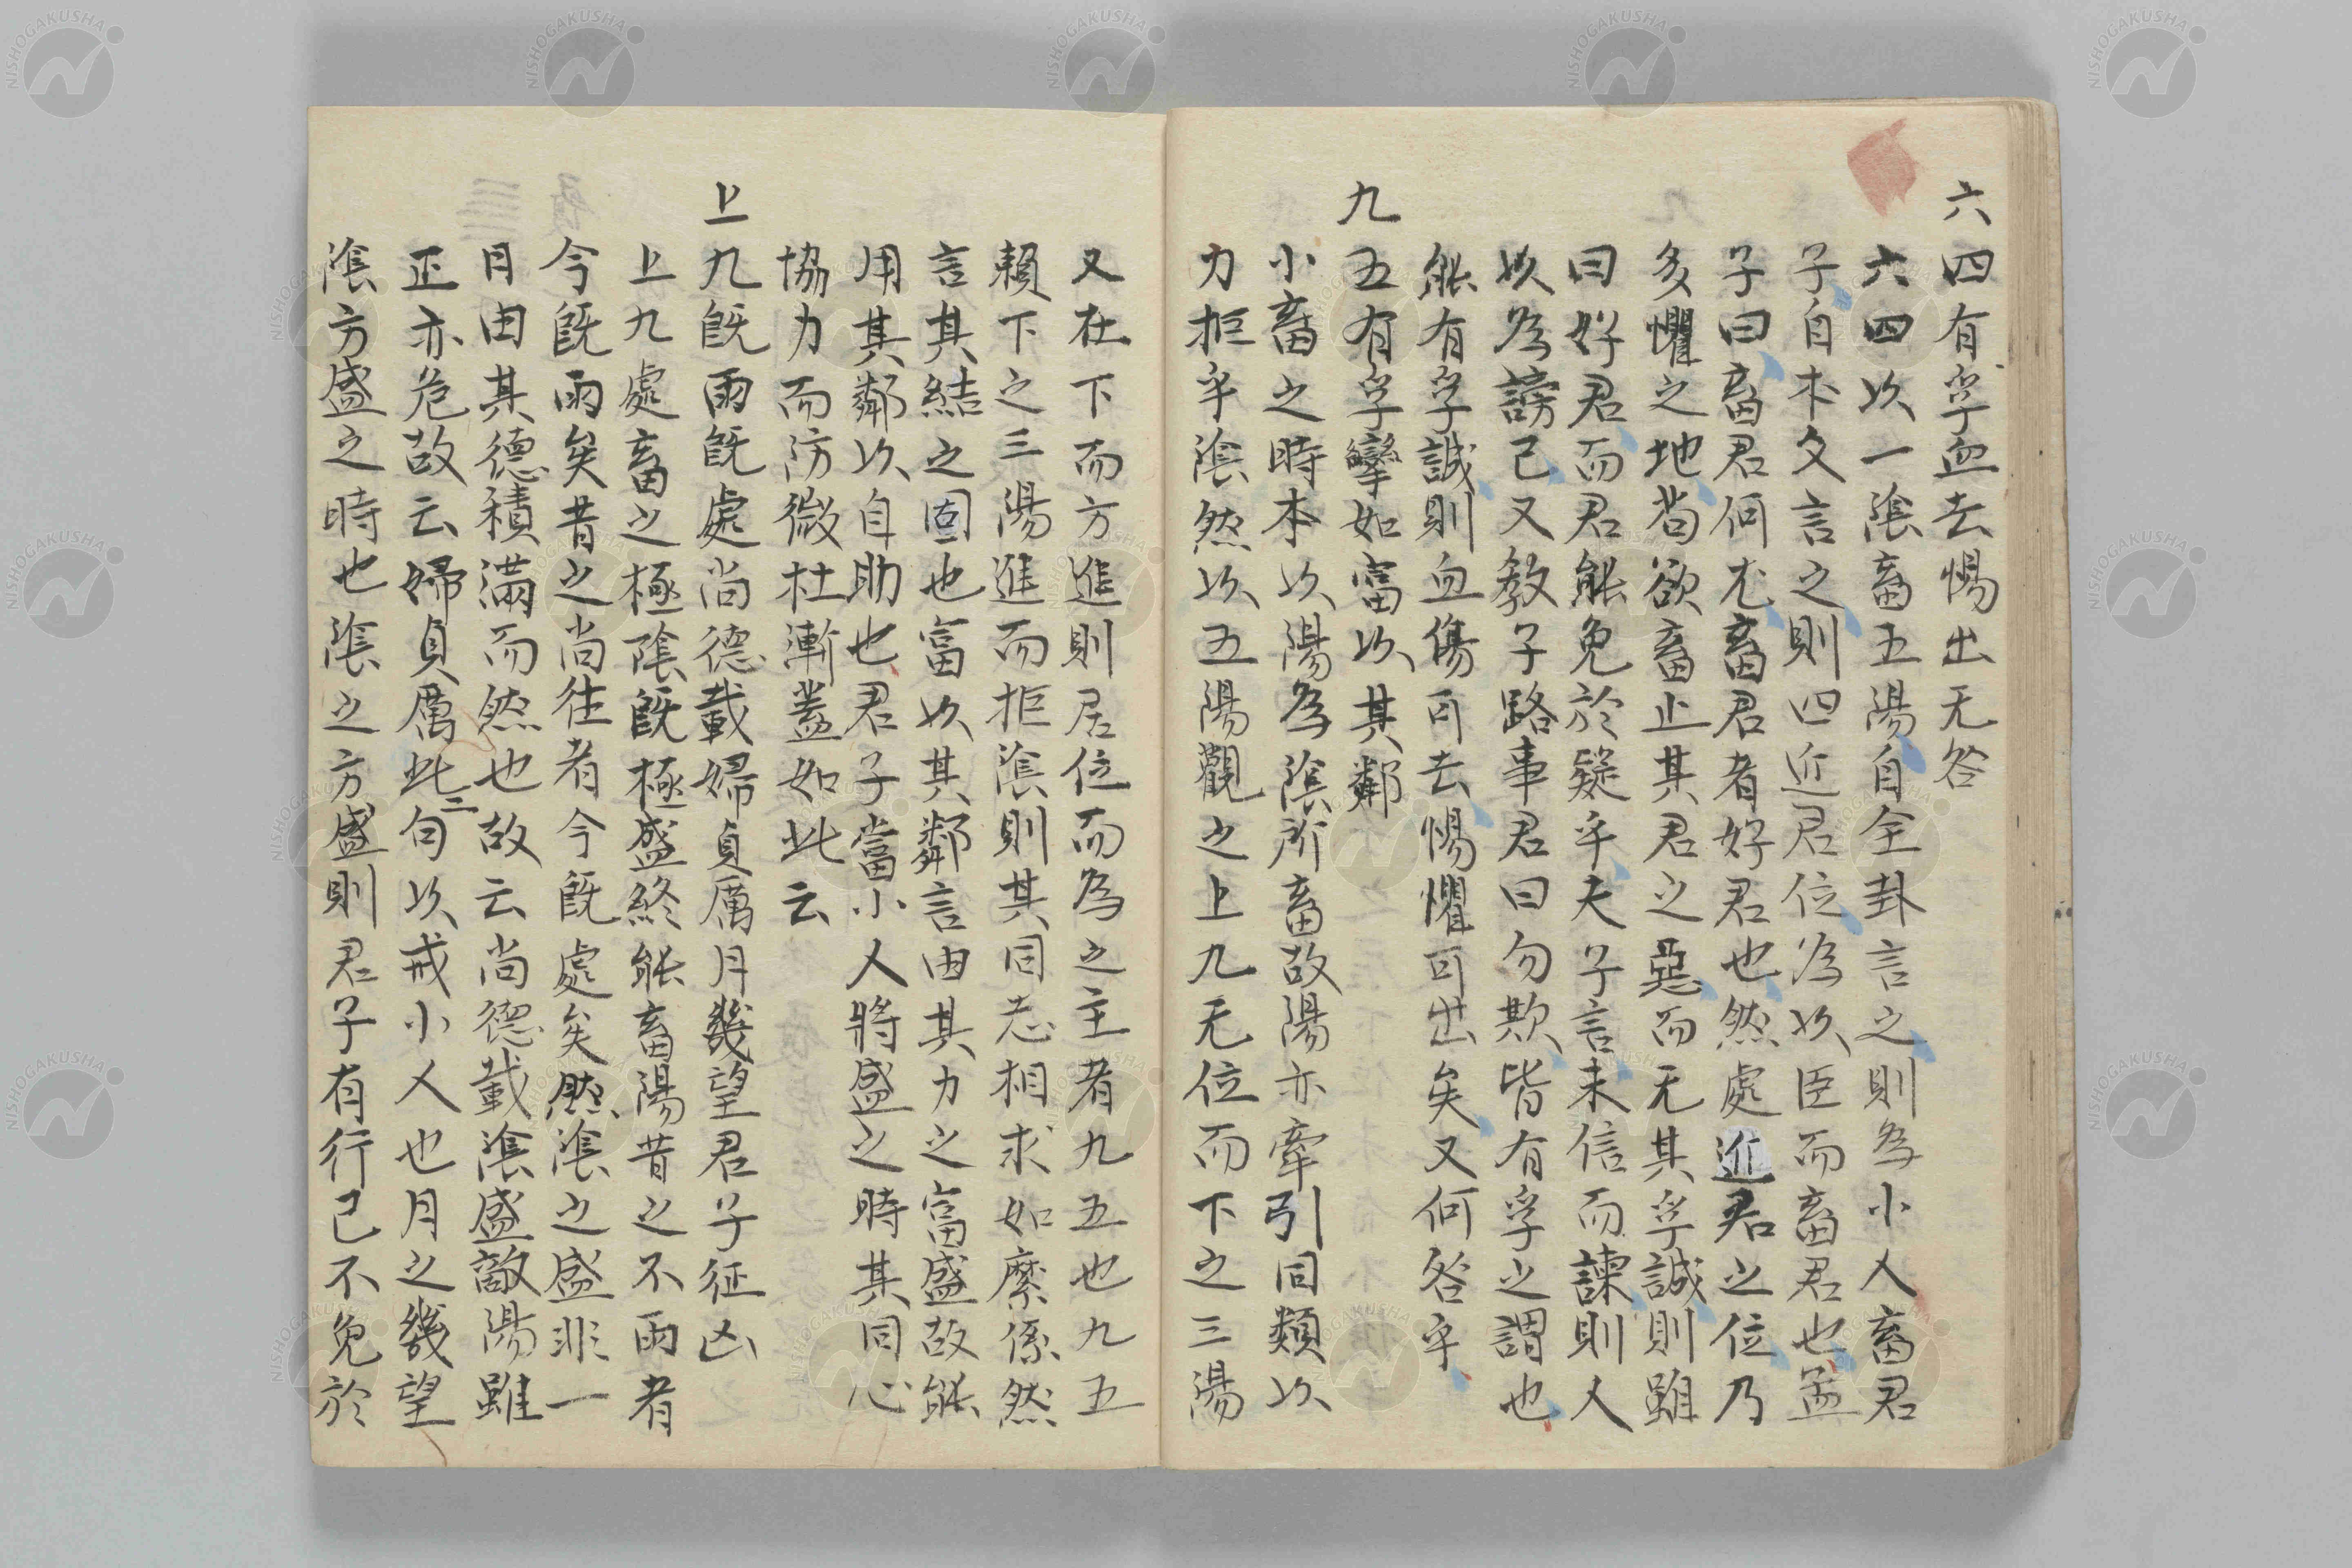 六四有孚血去惕出无咎
六四以一陰畜五陽自全卦言之則為小人畜君
子自本爻言之則四近君位為以臣而畜君也孟
子曰畜君何尤畜君者好君也然處近君之位乃
多懼之地苟欲畜止其君之惡而无其孚誠則雖
曰好君而君能免於疑乎夫子言未信而諫則人
以為謗己又教子路事君曰勿欺皆有孚之謂也
能有孚誠則血傷可去惕懼可出矣又何咎乎
九五有孚攣如富以其鄰
小畜之時本以陽為陰所畜故陽亦牽引同類以
力拒乎陰然以五陽觀之上九无位而下之三陽
又在下而方進則居位而為之主者九五也九五
賴下之三陽進而拒陰則其同志相求如縻係然
言其結之固也富以其鄰言由其力之富盛故能
用其鄰以自助也君子當小人將盛之時其同心
協力而防微杜漸蓋如此云
上九既雨既處尚德載婦貞厲月幾望君子征凶
上九處畜之極陰既極盛終能畜陽昔之不雨者
今既雨矣昔之尚往者今既處矣然陰之盛非一
日由其德積滿而然也故云尚德載陰盛敵陽雖
正亦危故云婦貞厲此二句以戒小人也月之幾望
陰方盛之時也陰之方盛則君子有行己不免於
NISHOGAKUSHA